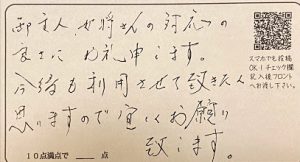 御主人、女将さんの対応の
良さにお礼申します。
今后も利用させて致きたく
思いますので宜しくお願い
致します。
10点満点で 点
スマホでも投稿
OK!チェック欄
記入後フロント
へお渡し下さい。